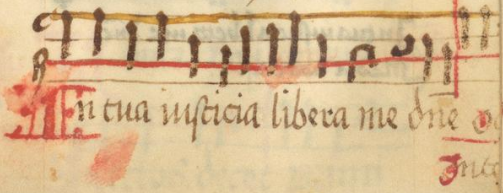 In tua iusticia libera me dñe